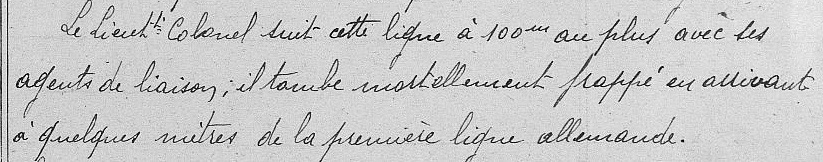 Le Lieutt Colonel suit cette ligne à 100m au plus avec ses
agents de liaison; il tombe mortellement frappé en arrivant
à quelques mètres de la première ligne allemande.